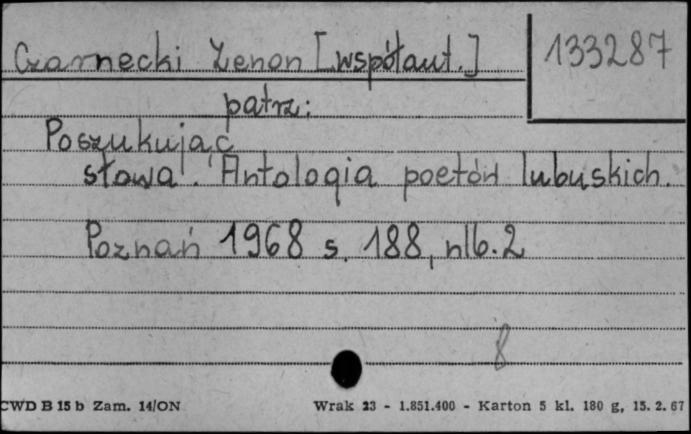 Czarnecki Zenon [współaut.] 133287
patrz:
Poszukując
słowa. Antologia poetów lubuskich.
Poznań 1968 s. 188, nlb. 2
8
CWD B 15 b Zam. 14/ON Wrak 23 - 1.851.400 - Karton 5 kl. 180 g, 15. 2. 67